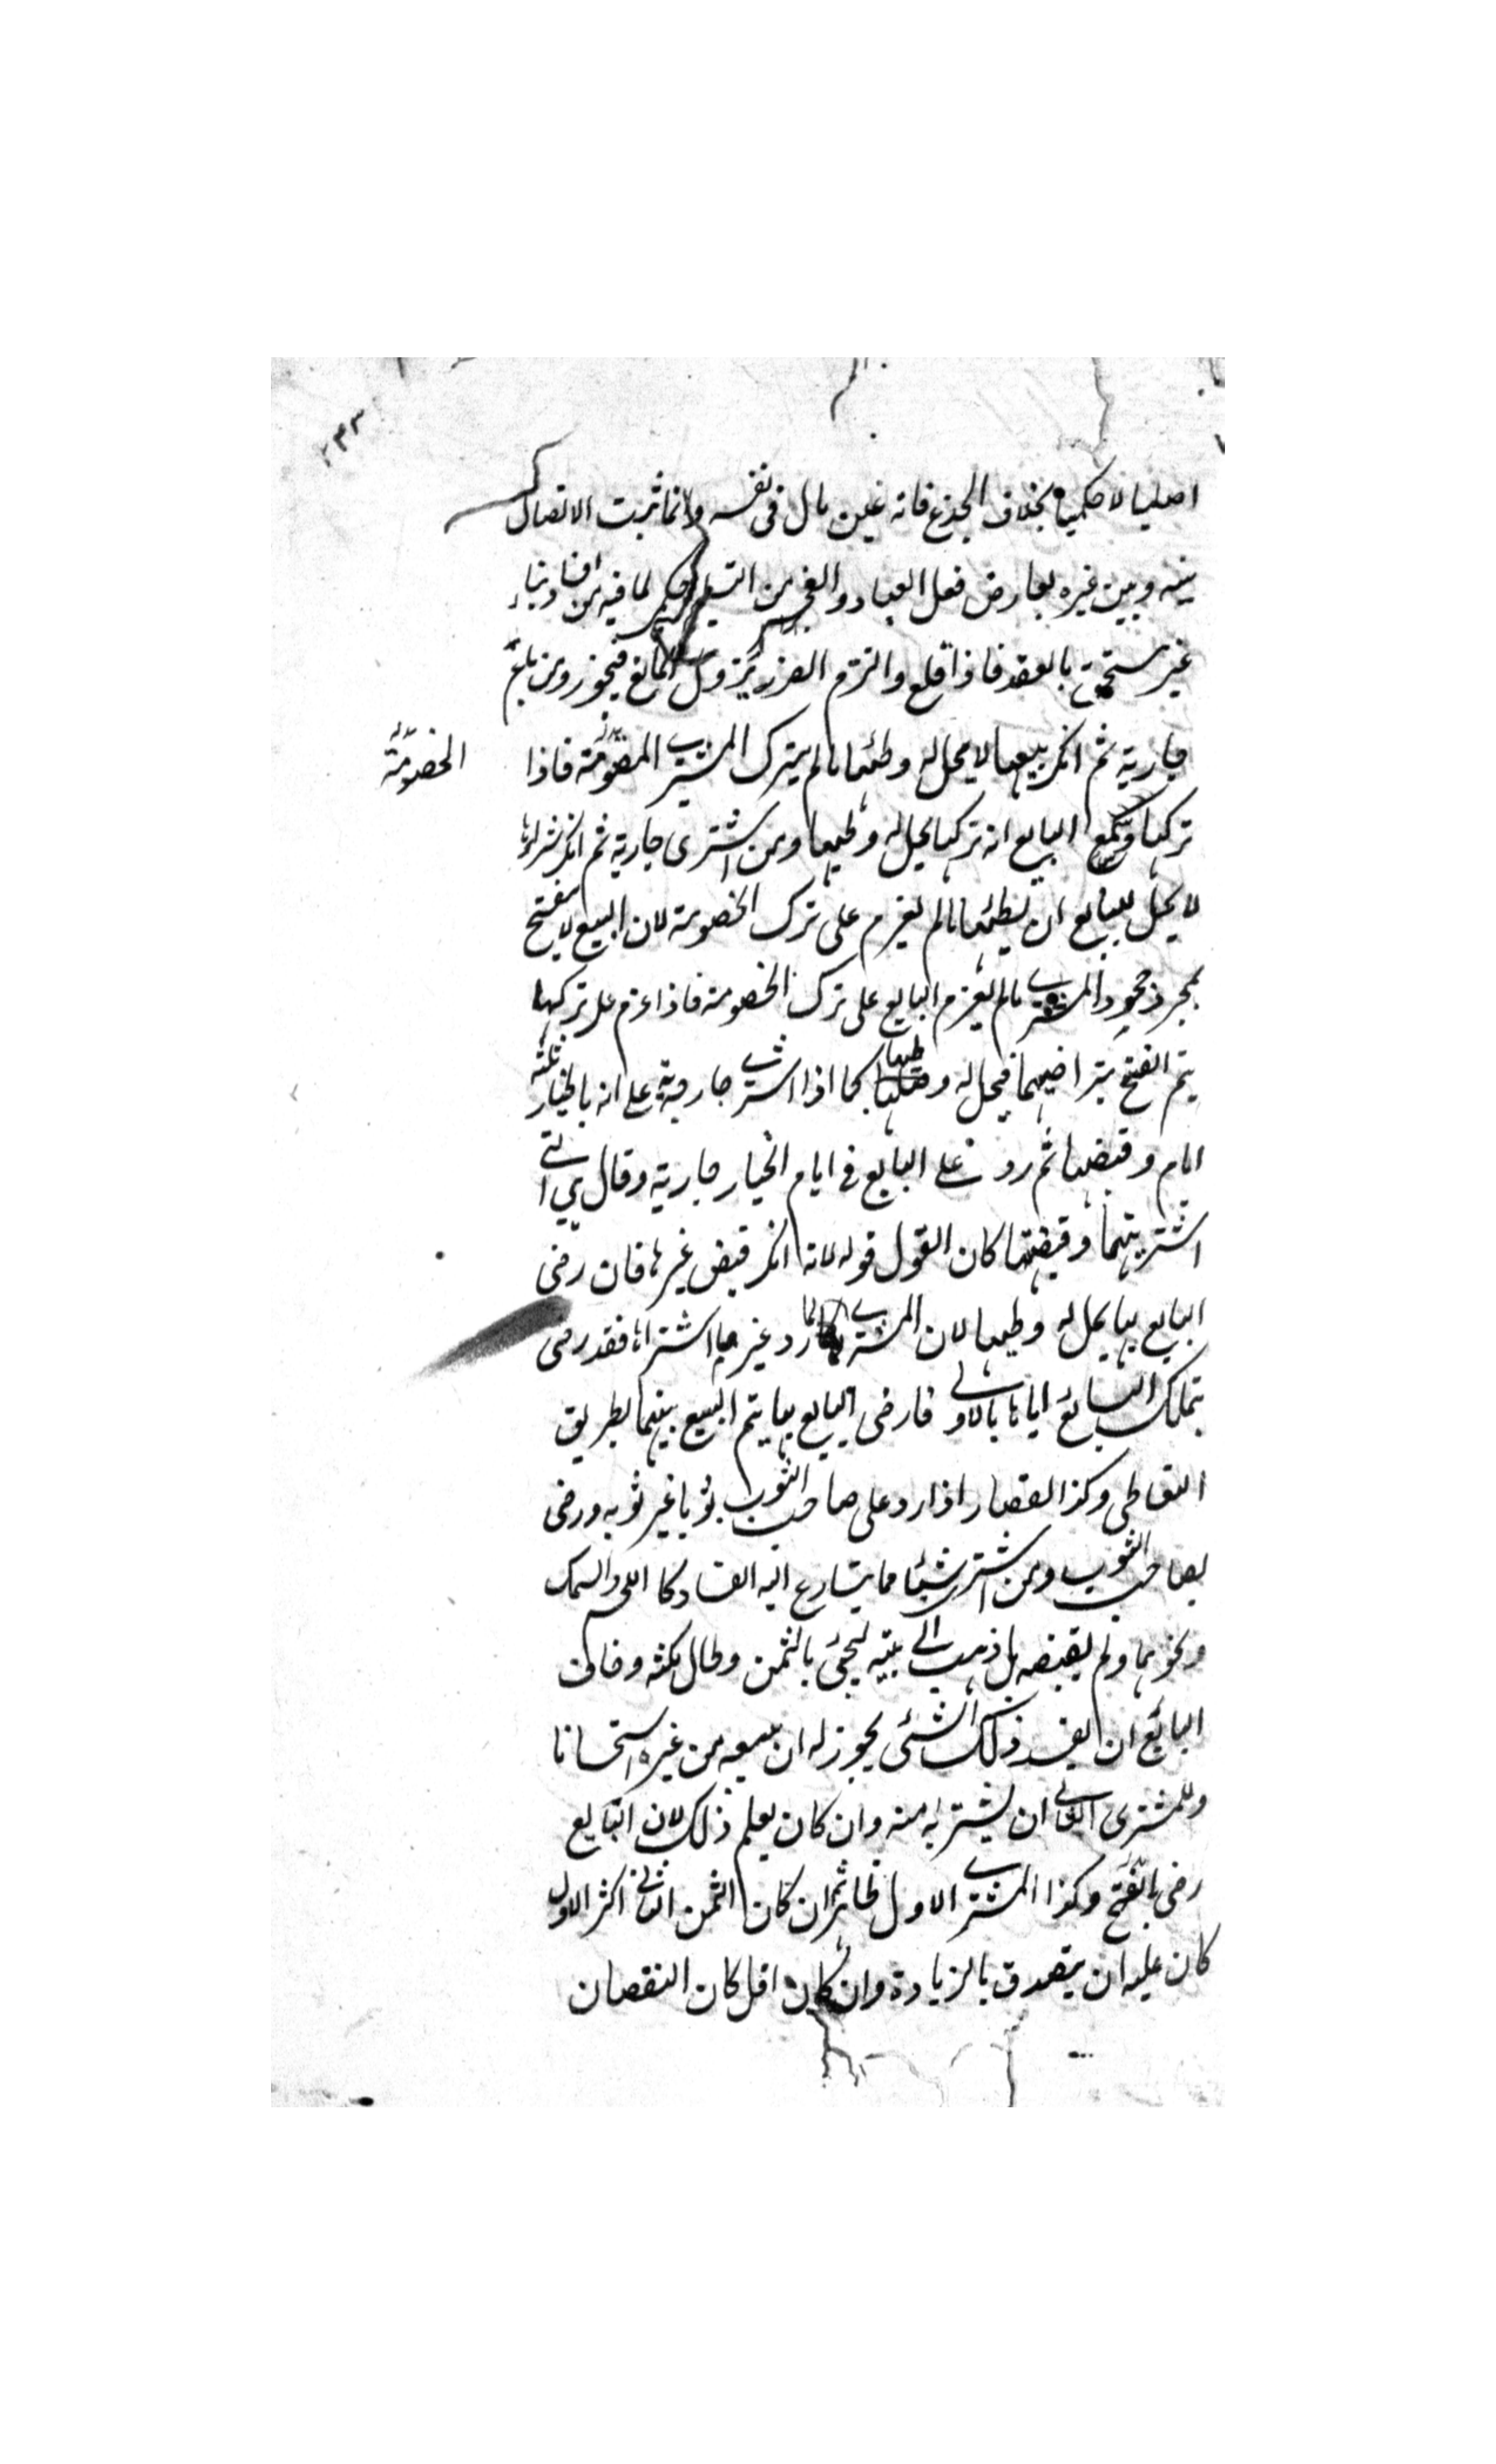 ٢٣٣
اصليا لا حكميا بخلاف الجذع فانه عين مال فى نفسه وانما ثبت الاتصال
بينه وبين غيره بعارض فعل العباد والعجز من التسليم حكمى لما فيه من افساد بناء
غير مستحق بالعقد فاذا قلع والتزم الضرر يزول المانع فيجوز ومن باع
جارية ثم انكر بيعها لا يحل له وطئها ما لم يترك المشترى الخصومة فاذا
الخصومة
تركها وسمع البايع انه تركها يحل له وطيها ومن اشترى جارية ثم انكر شراءها
لا يحل للبايع ان يطئها ما لم يعزم على ترك الخصومة لان البيع لا يفسخ
بمجرد جحود المشترى ما لم يعزم البايع على ترك الخصومة فاذا عزم على تركها
يتم الفسخ بتراضيهما فيحل له وطيها كما اذا اشترى جارية على انه بالخيار ثلثة
ايام وقبضها ثم رد على البايع فى ايام الخيار جارية وقال هى التى
اشتريتها وقبضتها كان القول قوله لانه انكر قبض غيرها فان رضى
البايع بها يحل له وطيها لان المشترى لما رد غير ما اشتراها فقد رضى
بتملك البائع اياها بالاولى فاذا رضى البايع بها يتم البيع بينهما بطريق
التعاطى وكذا القصار اذا رد على صاحب الثوب ثوبا غير ثوبه ورضى
به صاحب الثوب ومن اشترى شيئا مما يتسارع اليه الفساد كاللحم والسمك
ونحوهما ولم يقبضه بل ذهب الى بيته ليجئ بالثمن وطال مكثه وخاف
البائع ان يفسد ذلك الشئى يجوز له ان يبيعه من غيره استحسانا
وللمشترى الثانى ان يشتريه منه وان كان يعلم ذلك لان البايع
رضى بالفسخ وكذا المشترى الاول ظاهرا ثم ان كان الثمن الثانى اكثر الاول
كان عليه ان يتصدق بالزيادة وان كان اقل كان النقصان